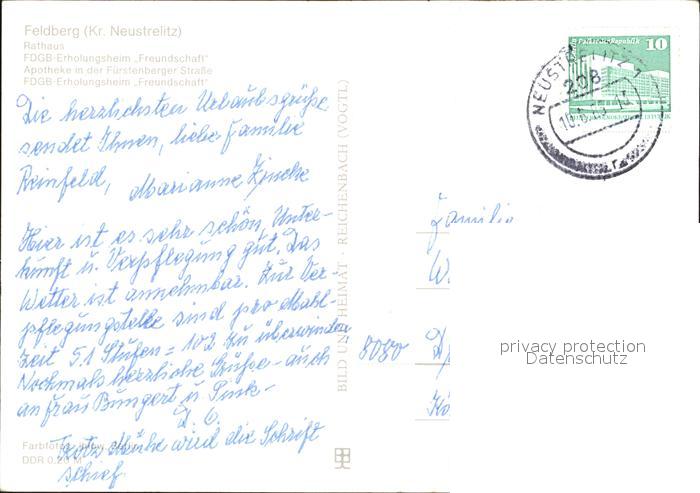 Feldberg (Kr. Neustrelitz)
Rathaus
FDGB-Erholungsheim „Freundschaft"
Apotheke in der Fürstenberger Straße
FDGB-Erholungsheim „Freundschaft"
Die herzlichsten Urlaubsgrüße
sendet Ihnen, liebe Familie
Reinfeld, Marianne
Hier ist es sehr schön, Unter-
kunft u. Verpflegung gut. Das
Wetter ist annehmbar. Zur Ver-
pflegungsstelle sind pro Mahl-
zeit 51 Stufen = 102 zu überwinden
Nochmals herzliche Grüße - auch
an Frau Bungert u.
D. O.
Trotz Mühe wird die Schrift
schief.
Farbfotos:
DDR 0,20 M
BILD UND HEIMAT · REICHENBACH (VOGTL)
NEUSTRELITZ 1
208
10
Familie
W
8080 D